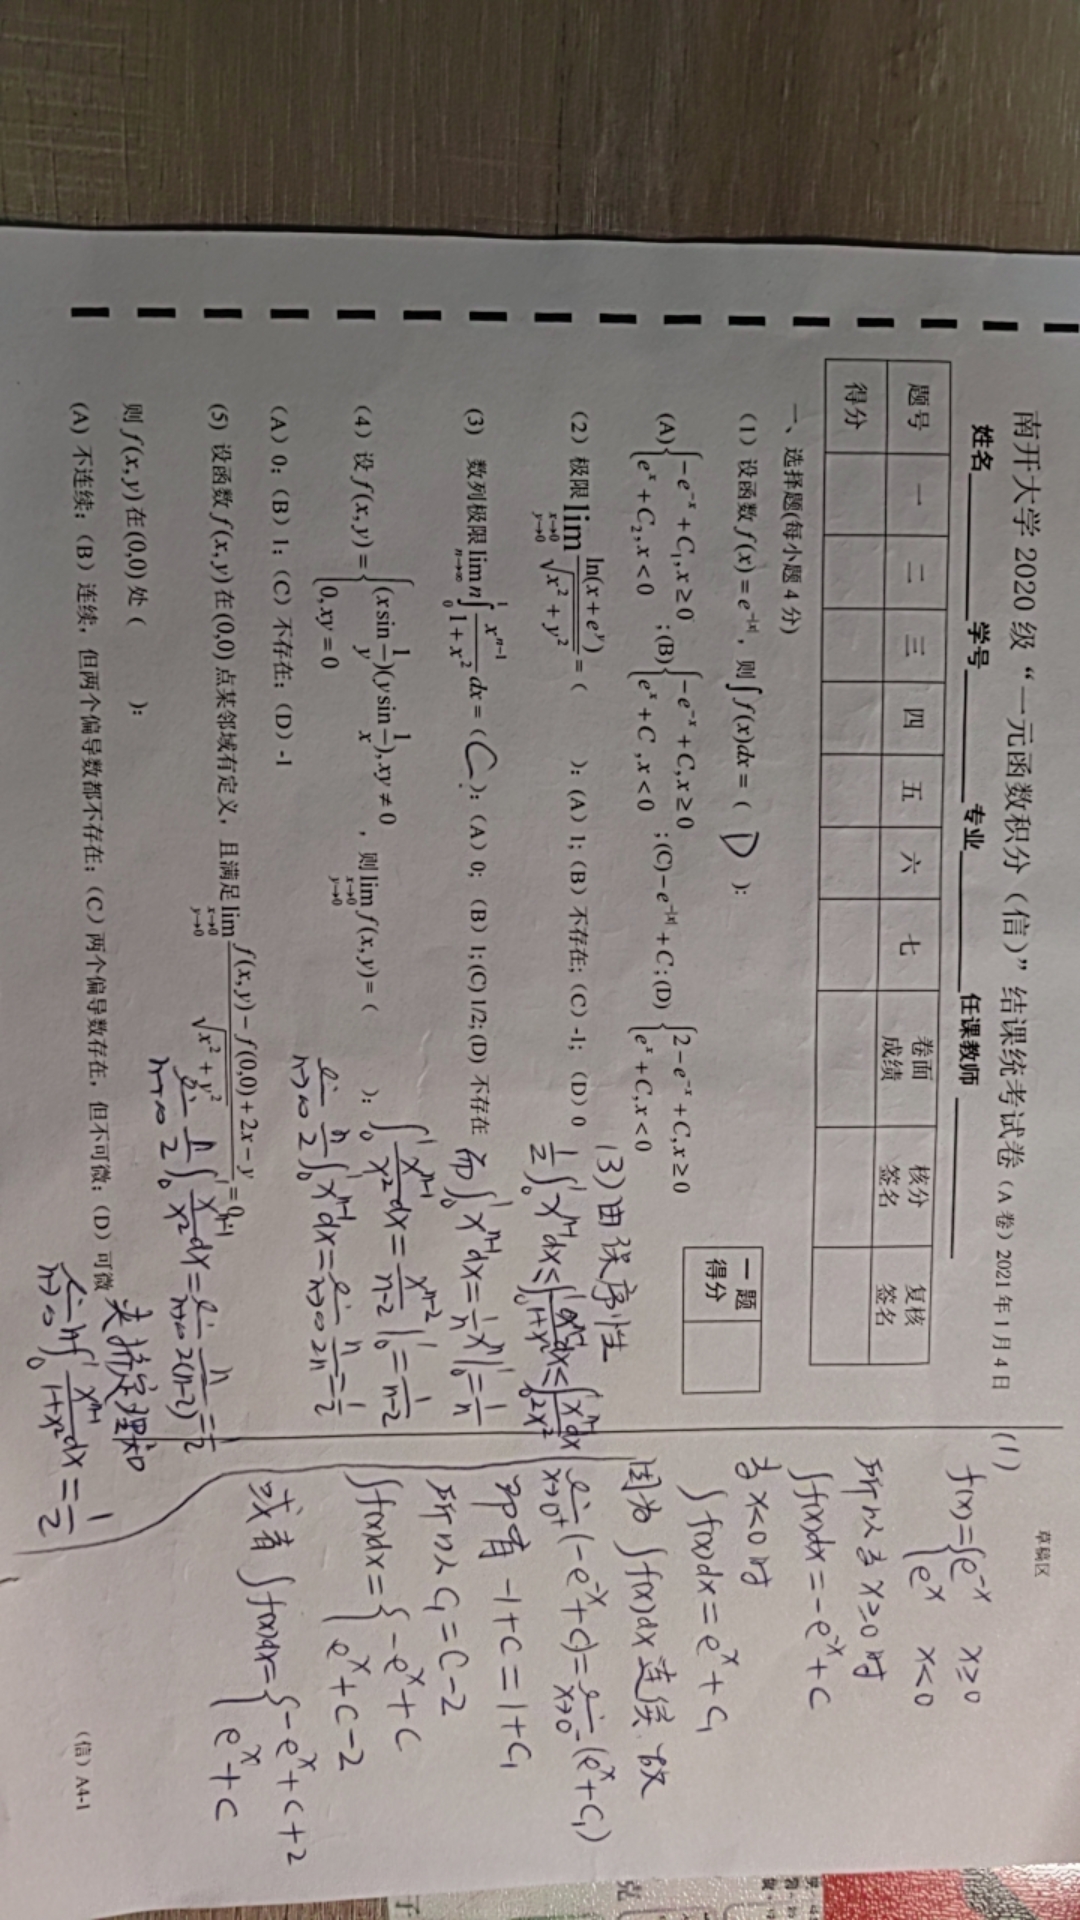 南开大学 2020 级“一元函数积分（信）”结课统考试卷（A 卷）2021 年 1 月 4 日
草稿区
姓名 学号 专业 任课教师
题号 一 二 三 四 五 六 七 卷面成绩 核分签名 复核签名
得分
一题得分
一、选择题(每小题 4 分)
（1）设函数 f(x) = e^{-|x|}，则 ∫f(x)dx = ( D ):
(A) {-e^{-x} + C₁, x ≥ 0; e^x + C₂, x < 0 ;(B) {-e^{-x} + C, x ≥ 0; e^x + C, x < 0 ;(C) -e^{-|x|} + C;(D) {2 - e^{-x} + C, x ≥ 0; e^x + C, x < 0
（2）极限 lim_{x→0, y→0} ln(x + e^y)/√(x² + y²) = ( ):（A）1;（B）不存在;（C）-1;（D）0
（3） 数列极限 lim_{n→∞} n∫₀¹ x^{n-1}/(1+x²) dx = ( C ):（A）0;（B）1; (C) 1/2; (D) 不存在
（4）设 f(x,y) = {(x sin 1/y)(y sin 1/x), xy ≠ 0; 0, xy = 0 ，则 lim_{x→0, y→0} f(x,y) = ( ):
（A）0;（B）1;（C）不存在;（D）-1
（5）设函数 f(x,y) 在 (0,0) 点某邻域有定义，且满足 lim_{x→0, y→0} (f(x,y) - f(0,0) + 2x - y)/√(x² + y²) = 0，
则 f(x,y) 在 (0,0) 处（ ）:
(A) 不连续;（B）连续，但两个偏导数都不存在;（C）两个偏导数存在，但不可微;（D）可微
(3) 由保序性
½∫₀¹ x^{n-1}dx ≤ ∫₀¹ x^{n-1}/(1+x²) dx ≤ ∫₀¹ x^{n-1}/2x² dx
而 ∫₀¹ x^{n-1}dx = 1/n xⁿ|₀¹ = 1/n
∫₀¹ x^{n-1}/x² dx = x^{n-2}/(n-2)|₀¹ = 1/(n-2)
lim_{n→∞} n/2 ∫₀¹ x^{n-1}dx = lim_{n→∞} n/2n = 1/2
lim_{n→∞} n/2 ∫₀¹ x^{n-1}/x² dx = lim_{n→∞} n/2(n-2) = 1/2
夹挤定理知
lim_{n→∞} n∫₀¹ x^{n-1}/(1+x²) dx = 1/2
(1)
f(x) = {e^{-x} x≥0
e^x x<0
所以当 x≥0 时
∫f(x)dx = -e^{-x} + C
当 x<0 时
∫f(x)dx = e^x + C₁
因为 ∫f(x)dx 连续 故
lim_{x→0⁺}(-e^{-x}+C) = lim_{x→0⁻}(e^x+C₁)
即有 -1+C = 1+C₁
所以 C₁ = C-2
∫f(x)dx = {-e^{-x}+C
e^x+C-2
或者 ∫f(x)dx = {-e^{-x}+C+2
e^x+C
（信）A4-1